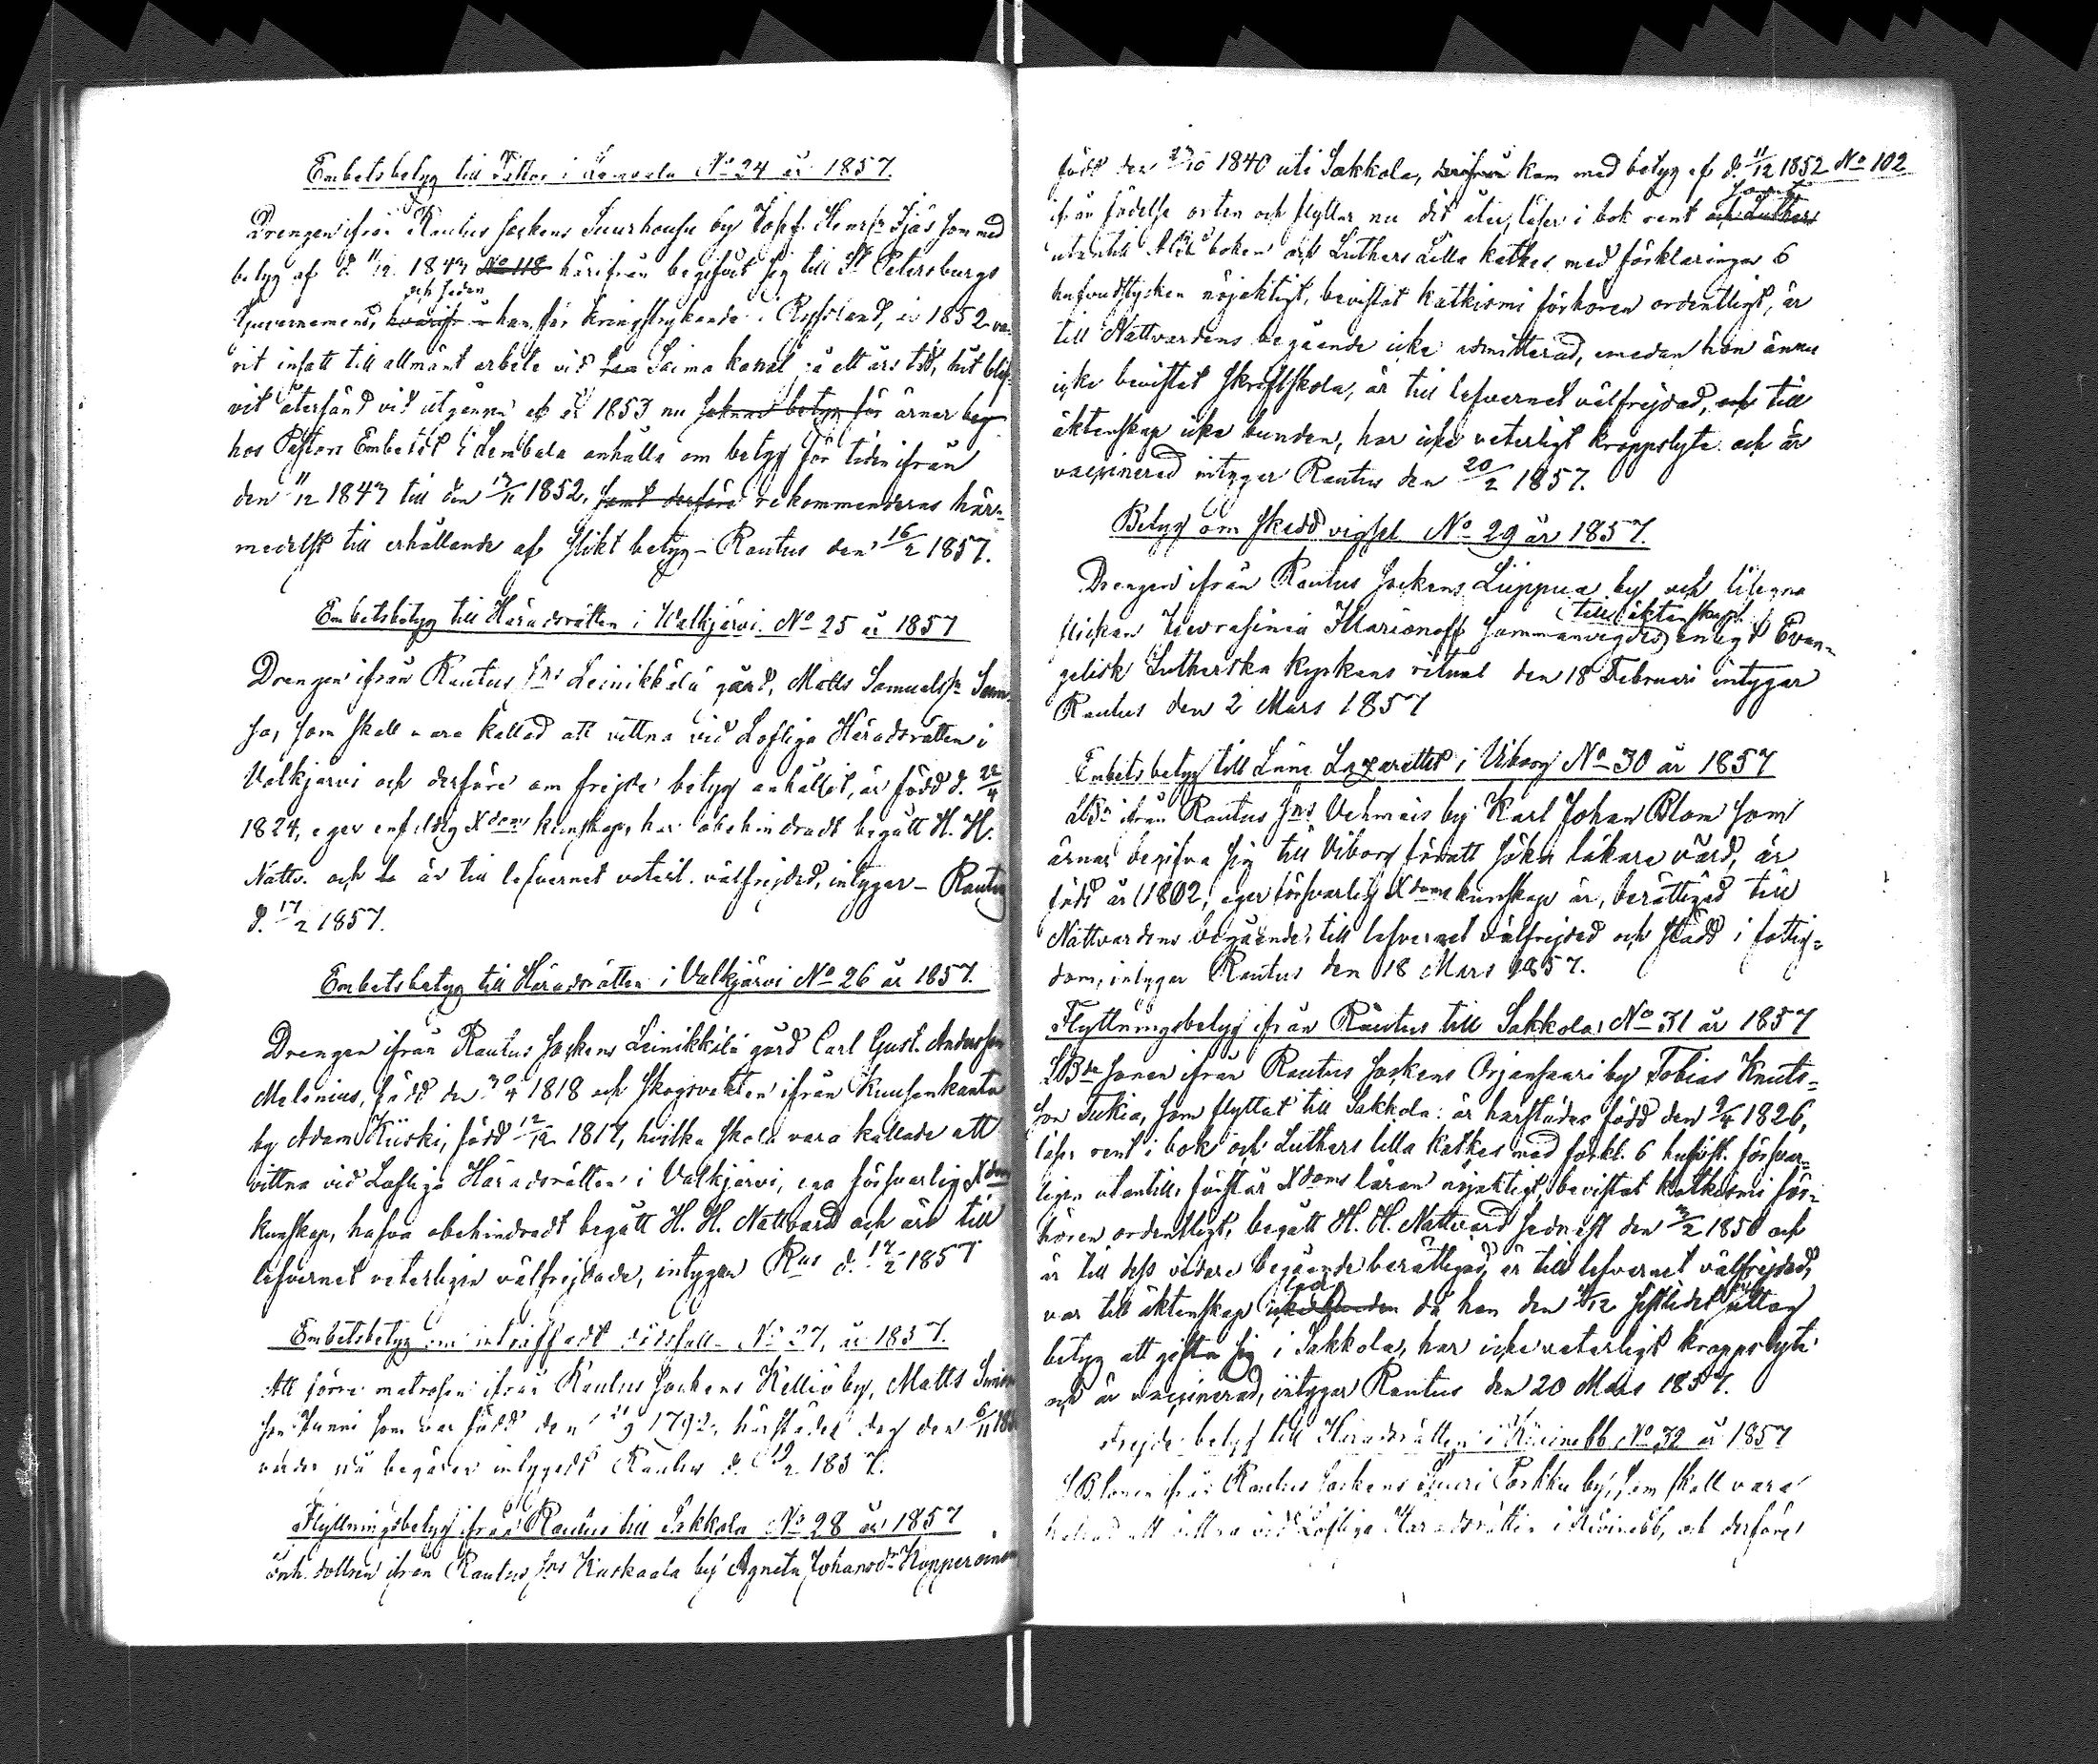 Embetsbetyg till Pastor i Lembala No 24 år 1857.
Drengen ifrån Rautus Sockens Suurhousu by Josef Henrss. Ijäs som med
betyg af d. 11/12 1847 No 118 härifrån begifvit sig till St Petersburgs
Guvernement, hvarifrån och sedan han, för kringstrykande i Ryssland, år 1852 va-
rit insatt till allmänt arbete vid Saima kanal på ett års tid, hit blif-
vit återsänd vid utgången af år 1853 nu saknar betyg för ärnar beg
hos Pastors Embetet i Lembala anhålla om betyg för tiden ifrån
den 11/12 1847 till den 17/11 1852, samt derföre rekommenderas här-
medelst till erhållande af slikt betyg - Rautus den 16/2 1857.
Embetsbetyg till Häradsrätten i Walkjärvi. No 25 år 1857
Drengen ifrån Rautus Sns Leinikkälä gård, Matts Samuelss.
som skall vara kallad att vittna vid Lofliga Häradsrätten i
Valkjärvi och derföre om frejde betyg anhållit, är född d. 22/4
1824, eger enfaldig Xdoms kunskap, har obehindradt begått H. H.
Nattv. och är till lefvernet veterl. välfrejdad, intygar - Rautus
d. 17/2 1857.
Embetsbetyg till Häradsrätten i Valkjärvi No 26 år 1857.
Drengen ifrån Rautus Sockens Leinikkälä gård Carl Gust. Andersson
Melenius, född den 30/4 1818 och Skogsvakten ifrån Kuusenkanta
by Adam Kiiski, född 12/12 1817, hvilka skola vara kallade att
vittna vid Lofliga Häradsrätten i Valkjärvi, ega försvarlig Xdoms
kunskap, hafva obehindradt begått H. H. Nattvard och äro till
lefvernet veterligen välfrejdade, intygar Rus d. 17/2 1857
Embetsbetyg om inträffadt dödsfall No 27, år 1857.
Att förre matrosen ifrån Rautus Sockens Kelliö by, Matts Simon
son som var född den 21/9 1792, härstädes dog den 6/11
varder på begäran intygadt Rautus d. 19/2 1857.
Flyttningsbetyg ifrån Rautus till Sakkola No 28 år 1857
Inh. dottren ifrån Rautus Sns Kuskaala by Agneta Johansdr Kopperoinen
född den 27/10 1840 uti Sakkola, derifrån kom med betyg af d. 11/12 1852 No 102
ifrån födelse orten och flyttar nu dit åter, läser i bok rent och Luthers samt
utantill Abc boken och Luthers Lilla Katkes med förklaringar 6
hufvudstycken nöjaktigt, bevistat katkismi förhören ordentligt, är
till Nattvardens begående icke admitterad, emedan hon ännu
icke bevistat Skriftskola, är till lefvernet välfrejdad, och till
äktenskap icke bunden, har icke veterligt kroppslyte och är
vaccinerad intygar Rautus den 20/2 1857.
Betyg om skedd vigsel No 29 år 1857.
Drengen ifrån Rautus Sockens Liippua by och
flickan Iewrasinia Illarionoff sammanvigdes till äktenskap enligt Evan-
gelisk Lutherska kyrkans ritual den 18 Februari intygar
Rautus den 2 Mars 1857
Embetsbetyg till Läne Lazarettet i Viborg No 30 år 1857
ifrån Rautus Sns Vehmais by Karl Johan Blom som
ärnar begifva sig till Viborg föratt söka läkare vård, är
född år 1802, eger försvarlig Xdoms kunskap är, berättigad till
Nattvardens begående, till lefvernet välfrejdad och stadd i fattig-
dom, intygar Rautus den 18 Mars 1857.
Flyttningsbetyg ifrån Rautus till Sakkola No 31 år 1857
LBde sonen ifrån Rautus Sockens Orjansaari by Tobias Knuts-
son Tukia, som flyttat till Sakkola: är härstädes född den 9/4 1826,
läser rent i bok och Luthers lilla Katkes med förkl. 6 hufvst. försvar-
ligen utantill, förstår Xdoms läran nöjaktigt, bevistat katkismi för-
hören ordentligt, begått H. H. Nattvard sednast den 3/2 1850 och
är till dess vidare begående berättigad, är till lefvernet välfrejdad,
var till äktenskap icke bunden ledig då han den 11/12 sistlidet uttog
betyg att gifta sig i Sakkola, har icke veterligt kroppslyte
och är vaccinerad, intygar Rautus den 20 Mars 1857.
Frejde betyg till Häradsrätten i Kivinebb No 32 år 1857
LB sonen ifrån Rautus Sockens Suuri Porkku by, som skall vara
kallad att vittna vid Lofliga Häradsrätten i Kivinebb, och derföre